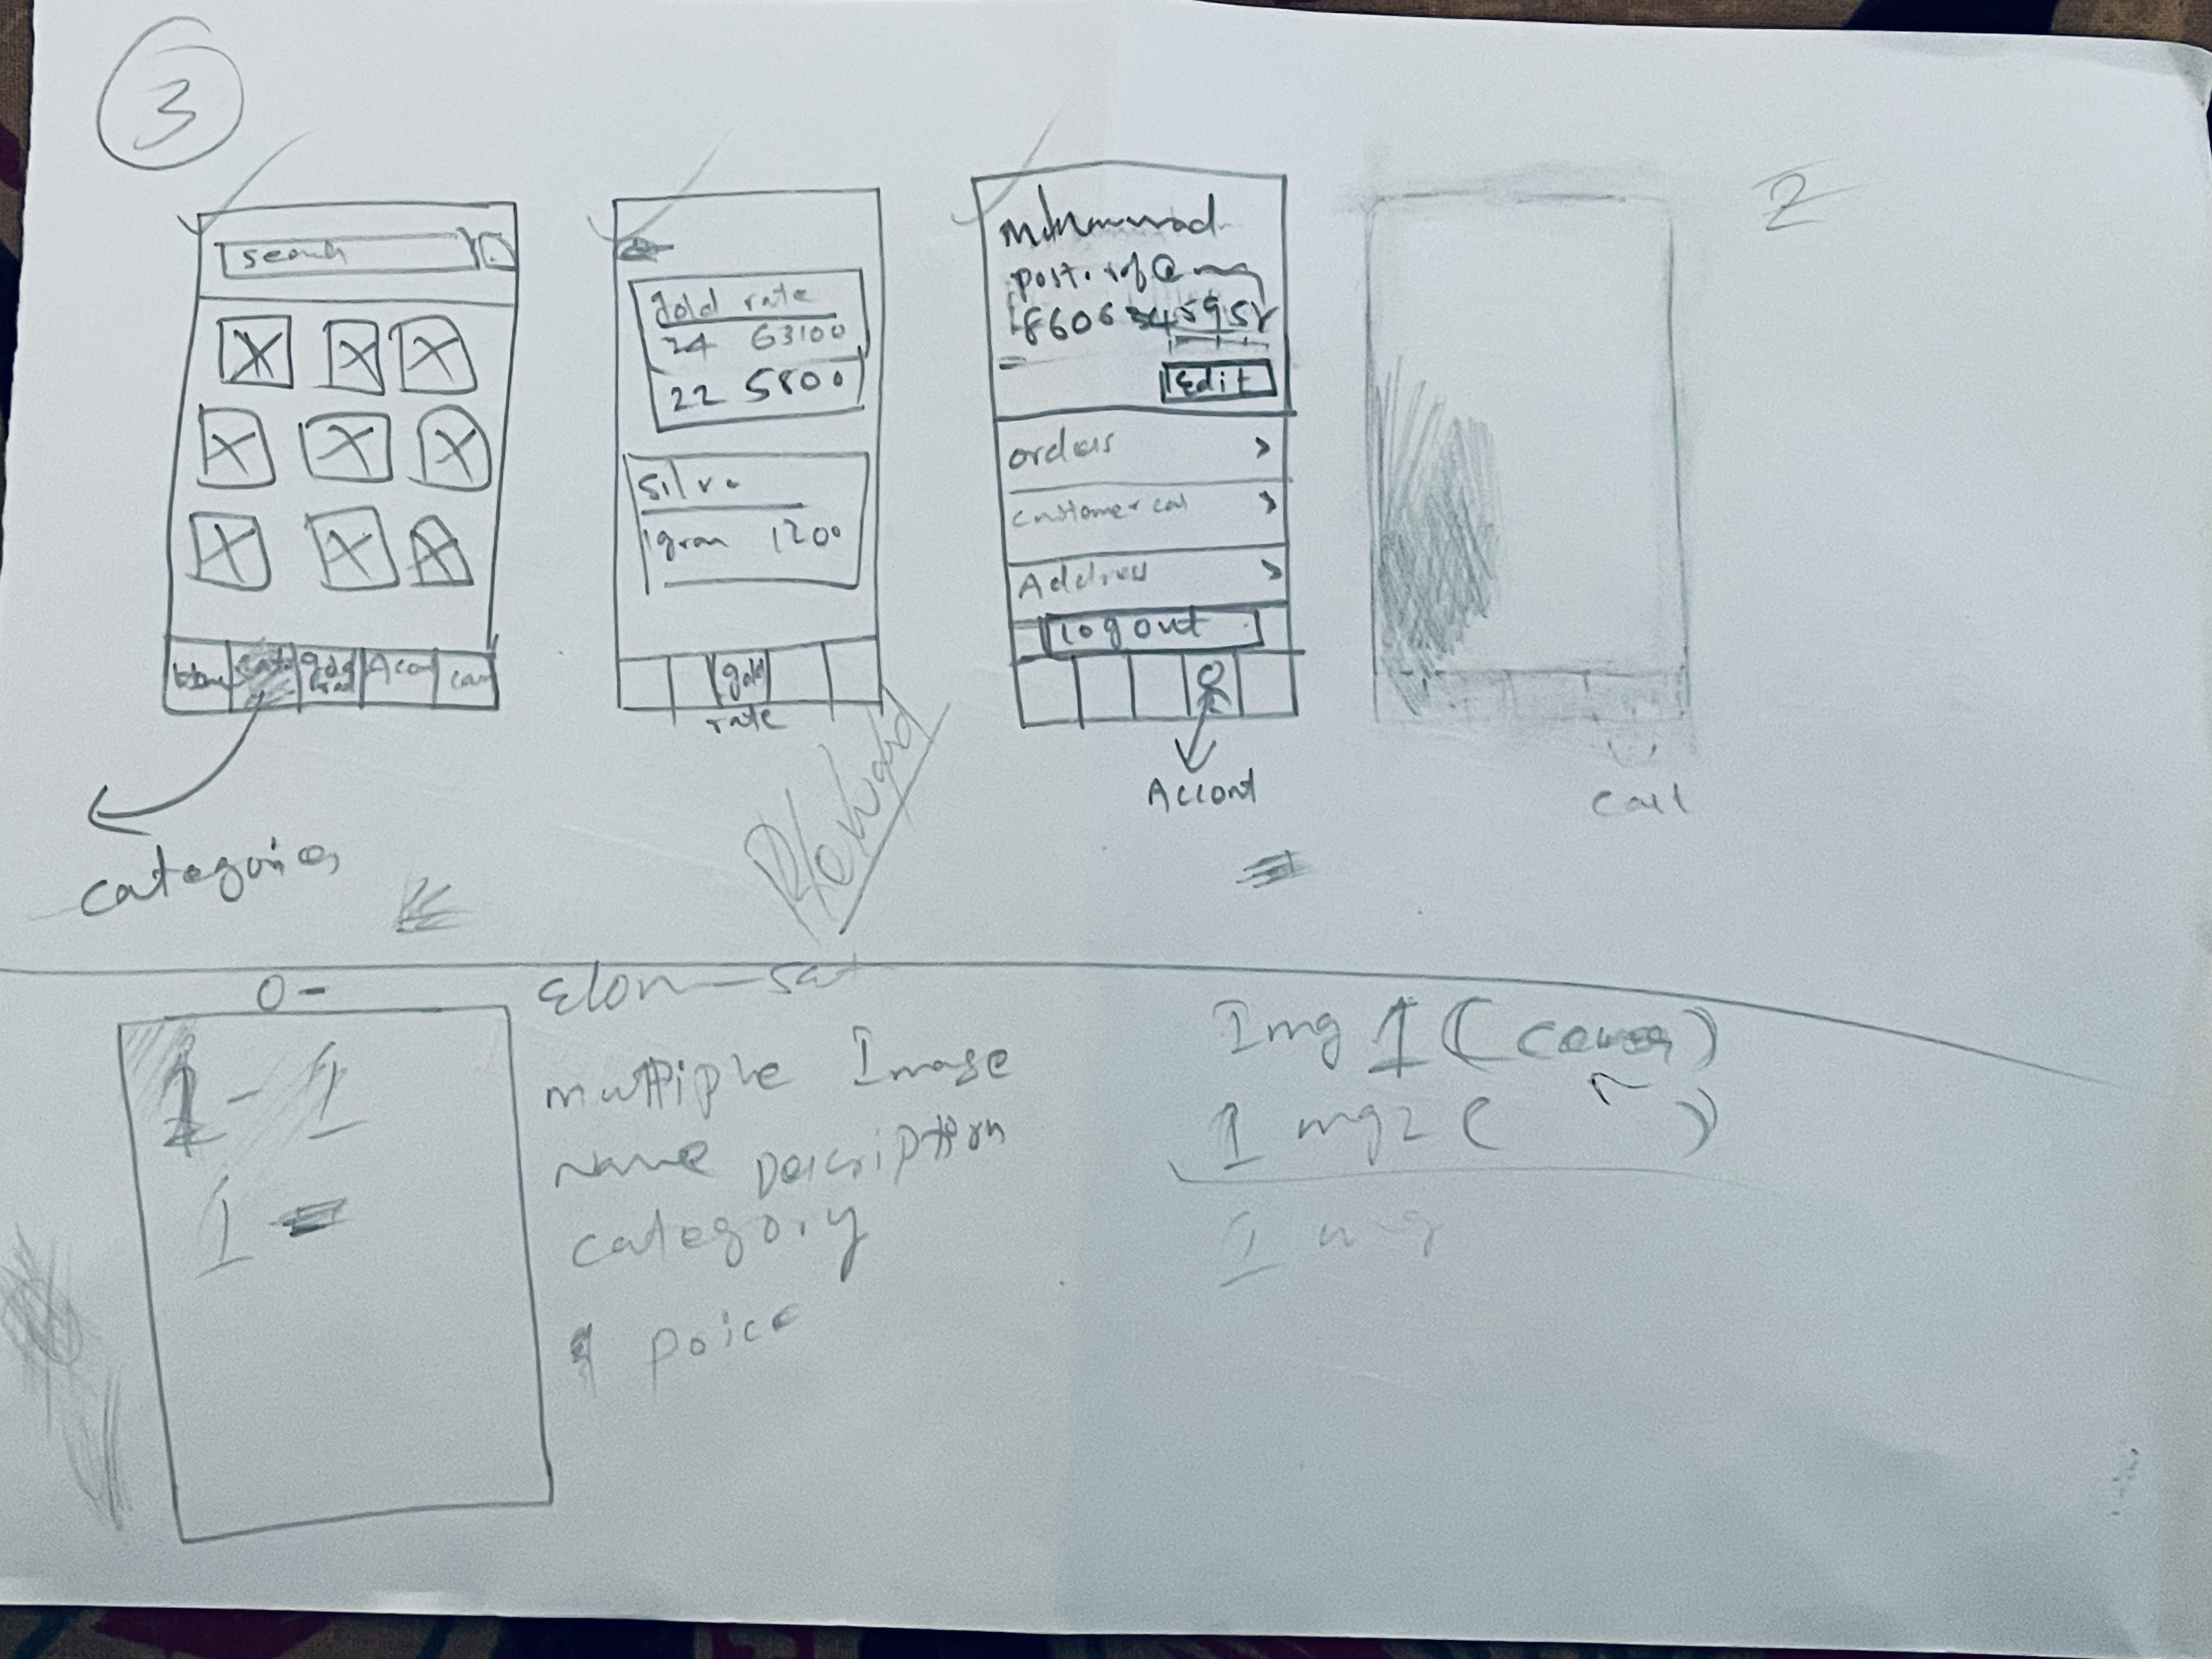 3
2
search
Home
gold
Acon
categories
gold rate
24 63100
22 5800
Silve
1gram 1200
gold
rate
Mohammad
post.
Edit
orders >
customer car >
Address >
logout
Accont
cart
0-
1 - 1
1
multiple Image
Name Description
category
poice
Img 1 (
1 mg2 ( )
1 mg